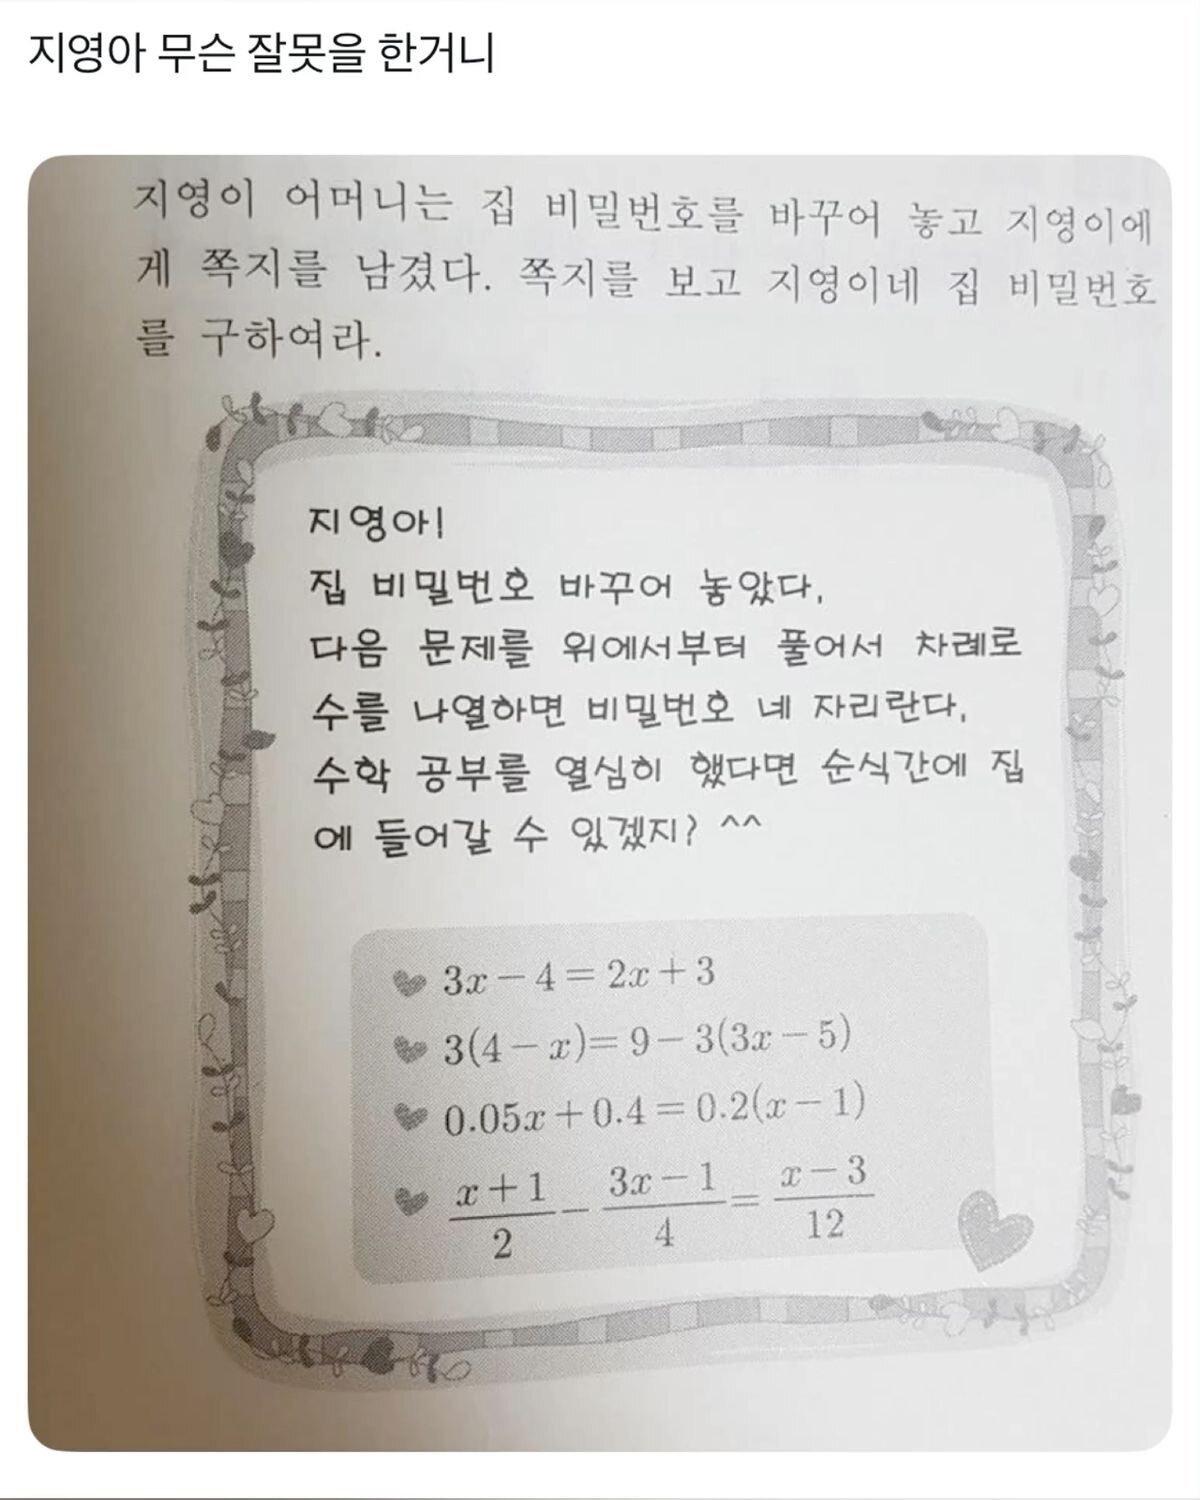 지영아 무슨 잘못을 한거니
지영이 어머니는 집 비밀번호를 바꾸어 놓고 지영이에
게 쪽지를 남겼다. 쪽지를 보고 지영이네 집 비밀번호
를 구하여라.
지영아!
집 비밀번호 바꾸어 놓았다.
다음 문제를 위에서부터 풀어서 차례로
수를 나열하면 비밀번호 네 자리란다.
수학 공부를 열심히 했다면 순식간에 집
에 들어갈 수 있겠지? ^^
3x-4=2x+3
3(4-x)=9-3(3x-5)
0.05x+0.4=0.2(x-1)
(x+1)/2-(3x-1)/4=(x-3)/12